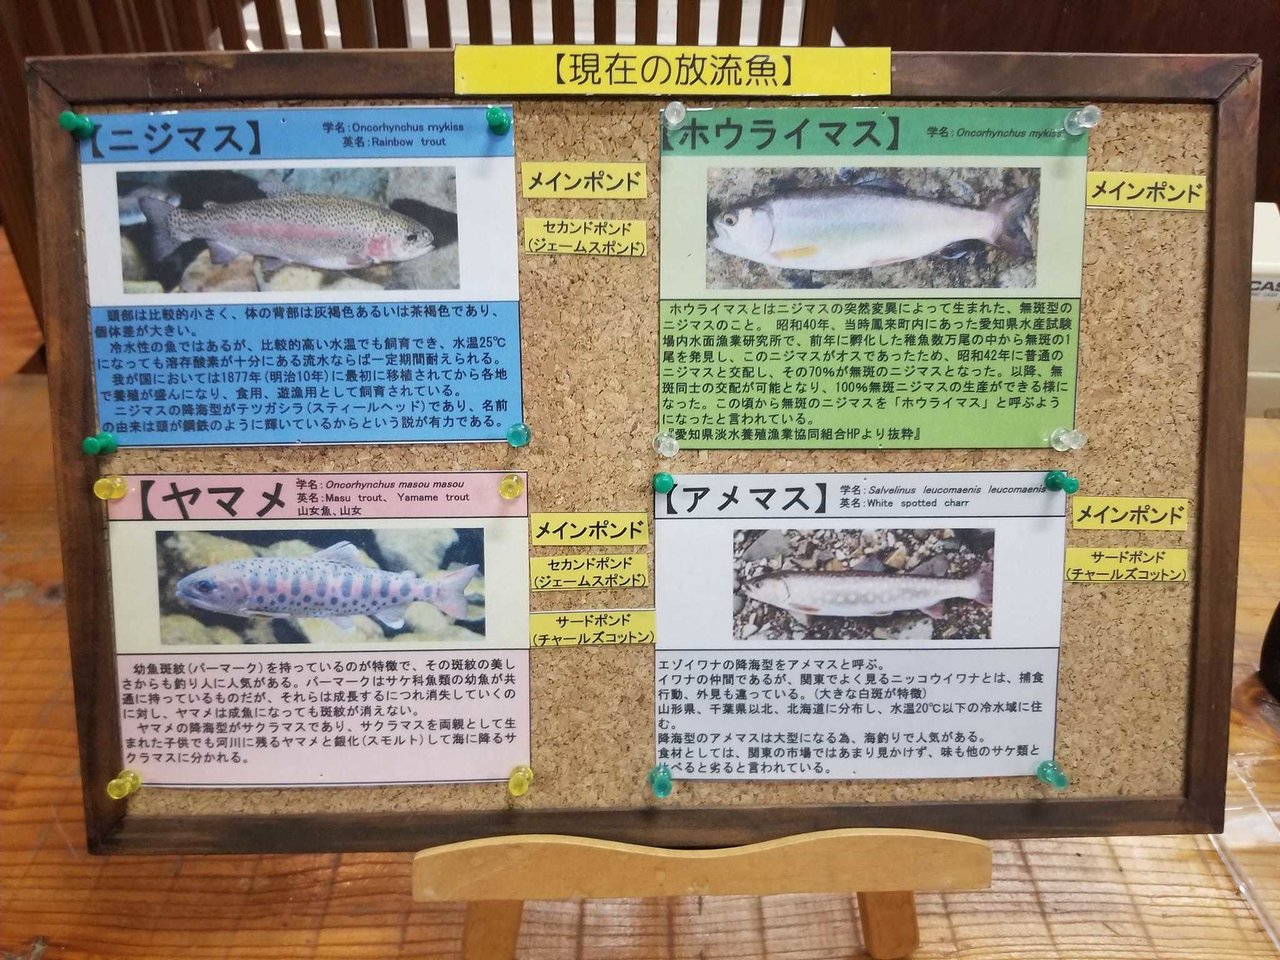 【現在の放流魚】
【ニジマス】
学名：Oncorhynchus mykiss
英名：Rainbow trout
頭部は比較的小さく、体の背部は灰褐色あるいは茶褐色であり、
個体差が大きい。
冷水性の魚ではあるが、比較的高い水温でも飼育でき、水温25℃
になっても溶存酸素が十分にある流水ならば一定期間耐えられる。
我が国においては1877年（明治10年）に最初に移植されてから各地
で養殖が盛んになり、食用、遊漁用として飼育されている。
ニジマスの降海型がテツガシラ（スティールヘッド）であり、名前
の由来は頭が鋼鉄のように輝いているからという説が有力である。
メインポンド
セカンドポンド
（ジェームスポンド）
【ホウライマス】
学名：Oncorhynchus mykiss
ホウライマスとはニジマスの突然変異によって生まれた、無斑型の
ニジマスのこと。 昭和40年、当時鳳来町内にあった愛知県水産試験
場内水面漁業研究所で、前年に孵化した稚魚数万尾の中から無斑の1
尾を発見し、このニジマスがオスであったため、昭和42年に普通の
ニジマスと交配し、その70％が無斑のニジマスとなった。以降、無
斑同士の交配が可能となり、100％無斑ニジマスの生産ができる様に
なった。この頃から無斑のニジマスを「ホウライマス」と呼ぶよう
になったと言われている。
『愛知県淡水養殖漁業協同組合HPより抜粋』
メインポンド
【ヤマメ
学名：Oncorhynchus masou masou
英名：Masu trout、 Yamame trout
山女魚、山女
幼魚斑紋（パーマーク）を持っているのが特徴で、その斑紋の美し
さからも釣り人に人気がある。パーマークはサケ科魚類の幼魚が共
通に持っているものだが、それらは成長するにつれ消失していくの
に対し、ヤマメは成魚になっても斑紋が消えない。
ヤマメの降海型がサクラマスであり、サクラマスを両親として生
まれた子供でも河川に残るヤマメと銀化（スモルト）して海に降るサ
クラマスに分かれる。
メインポンド
セカンドポンド
（ジェームスポンド）
サードポンド
（チャールズコットン）
【アメマス】
学名：Salvelinus leucomaenis leucomaenis
英名：White spotted charr
エゾイワナの降海型をアメマスと呼ぶ。
イワナの仲間であるが、関東でよく見るニッコウイワナとは、捕食
行動、外見も違っている。（大きな白斑が特徴）
山形県、千葉県以北、北海道に分布し、水温20℃以下の冷水域に住
む。
降海型のアメマスは大型になる為、海釣りで人気がある。
食材としては、関東の市場ではあまり見かけず、味も他のサケ類と
比べると劣ると言われている。
メインポンド
サードポンド
（チャールズコットン）